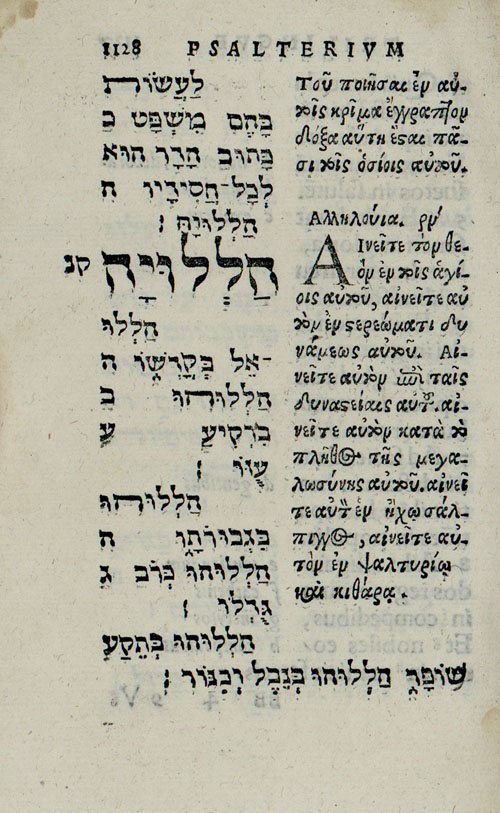 1128 PSALTERIVM
לַעֲשׂוֹת
בָּהֶם מִשְׁפָּט כ
כָּתוּב הָדָר הוּא
לְכָל־חֲסִידָיו ה
הַלְלוּיָהּ׃
הַלְלוּיָהּ קנ
הַלְלוּ
־אֵל בְּקָדְשׁוֹ ה
הַלְלוּהוּ ב
בִּרְקִיעַ ע
עֻזּוֹ׃
הַלְלוּהוּ
בִּגְבוּרֹתָיו ה
הַלְלוּהוּ כְּרֹב ג
גֻּדְלוֹ׃
הַלְלוּהוּ בְּתֵקַע
שׁוֹפָר הַלְלוּהוּ בְּנֵבֶל וְכִנּוֹר׃
Τοῦ ποιῆσαι ἐν αὐ-
τοῖς κρίμα ἔγγραπτον
δόξα αὕτη ἔσται πᾶ-
σι τοῖς ὁσίοις αὐτοῦ.
Αλληλούια. ρν΄
ΑΙνεῖτε τὸν θε-
ὸν ἐν τοῖς ἁγί-
οις αὐτοῦ, αἰνεῖτε αὐ
τὸν ἐν στερεώματι δυ
νάμεως αὐτοῦ. Αἰ-
νεῖτε αὐτὸν ἐπὶ ταῖς
δυναστείαις αὐτοῦ. αἰ-
νεῖτε αὐτὸν κατὰ τὸ
πλῆθος τῆς μεγα-
λωσύνης αὐτοῦ. αἰνεῖ
τε αὐτὸν ἐν ἤχῳ σάλ-
πιγγος, αἰνεῖτε αὐ-
τὸν ἐν ψαλτυρίῳ
καὶ κιθάρᾳ.